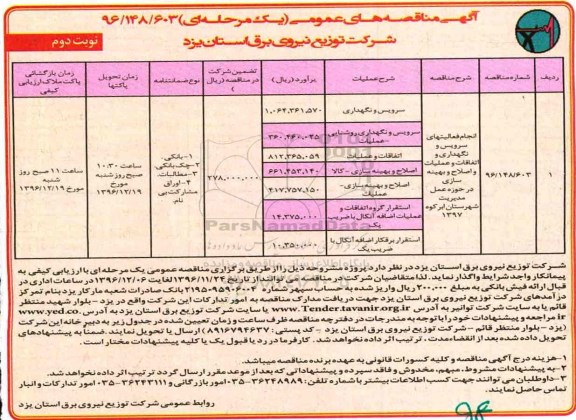 آگهی مناقصه های عمومی (یک مرحله ای) ۹۶/۱۴۸/۶۰۳
شرکت توزیع نیروی برق استان یزد
نوبت دوم
ردیف
شماره مناقصه
شرح مناقصه
شرح عملیات
برآورد (ریال)
تضمین شرکت در مناقصه (ریال)
نوع ضمانتنامه
زمان تحویل پاکتها
زمان بازگشائی پاکت ملاک ارزیابی کیفی
۱
۹۶/۱۴۸/۶۰۳
انجام فعالیتهای
سرویس و
نگهداری و
اتفاقات و عملیات
و اصلاح و بهینه
سازی
در حوزه عمل
مدیریت
شهرستان ابرکوه
۱۳۹۷
سرویس و نگهداری
۱.۰۶۴.۳۶۱.۵۷۰
سرویس و نگهداری روشنایی - عملیات
۳۶۰.۴۶۰.۰۴۵
اتفاقات و عملیات
۸۱۲.۳۶۵.۰۵۹
اصلاح و بهینه سازی - کالا
۶۶۱.۴۵۳.۱۴۰
اصلاح و بهینه سازی - عملیات
۴۱۷.۷۵۷.۱۵۰
استقرار گروه اتفاقات و عملیات اضافه آنکال با ضریب یک
۱۴.۳۷۵.۰۰۰
استقرار برقکار اضافه آنکال با ضریب یک
۱۰.۳۵۰.۰۰۰
۲۷۸.۰۰۰.۰۰۰
۱- بانکی
۲- چک بانکی
۳- مطالبات
۴- اوراق مشارکت بی نام
ساعت ۱۰:۳۰ صبح روز شنبه مورخ ۱۳۹۶/۱۲/۱۹
ساعت ۱۱ صبح روز شنبه مورخ ۱۳۹۶/۱۲/۱۹
ParsNamadData
شرکت توزیع نیروی برق استان یزد در نظر دارد پروژه مشروحه ذیل را از طریق برگزاری مناقصه عمومی یک مرحله ای با ارزیابی کیفی به
پیمانکار واجد شرایط واگذار نماید. لذا متقاضیان شرکت در مناقصه می توانند از تاریخ ۱۳۹۶/۱۱/۲۴ لغایت ۱۳۹۶/۱۲/۰۶ در ساعات اداری در
قبال ارائه فیش بانکی به مبلغ ۲۰۰.۰۰۰ ریال واریز شده به حساب سپهر شماره ۰۲۱۹۵۰۹۵۹۰۶۰۰۲ بانک صادرات شعبه مارکار یزد بنام تمرکز
درآمدهای شرکت توزیع نیروی برق استان یزد جهت دریافت مدارک مناقصه به امور تدارکات این شرکت واقع در یزد - بلوار شهید منتظر
قائم یا به سایت شرکت توانیر به آدرس www.Tender.tavanir.org.ir یا سایت شرکت توزیع استان یزد به آدرس www.yed.co.
ir مراجعه و پیشنهادات خود را با توجه به مندرجات در دفترچه مناقصه ظرف ساعت و زمان تعیین شده در جدول زیر به دبیرخانه این شرکت
(یزد - بلوار منتظر قائم - شرکت توزیع نیروی برق استان یزد - کد پستی: ۸۹۱۶۷۹۴۶۳۷) ارسال یا تحویل نمایند. ضمناً به پیشنهادهای
تحویل داده شده بعد از انقضاء مدت، ترتیب اثر داده نخواهد شد. کارفرما در رد یا قبول یک یا کلیه پیشنهادات مختار است.
۱- هزینه درج آگهی مناقصه و کلیه کسورات قانونی به عهده برنده مناقصه میباشد.
۲- به پیشنهادات مشروط، مبهم، مخدوش و فاقد سپرده و پیشنهاداتی که بعد از موعد مقرر ارسال گردد ترتیب اثر داده نخواهد شد.
۳- داوطلبان می توانند جهت کسب اطلاعات بیشتر با شماره تلفن: ۰۳۵-۳۶۲۴۸۹۸۹ امور بازرگانی و ۰۳۵-۳۶۲۴۳۱۱۱ امور تدارکات و انبار
تماس حاصل نمایند.
روابط عمومی شرکت توزیع نیروی برق استان یزد